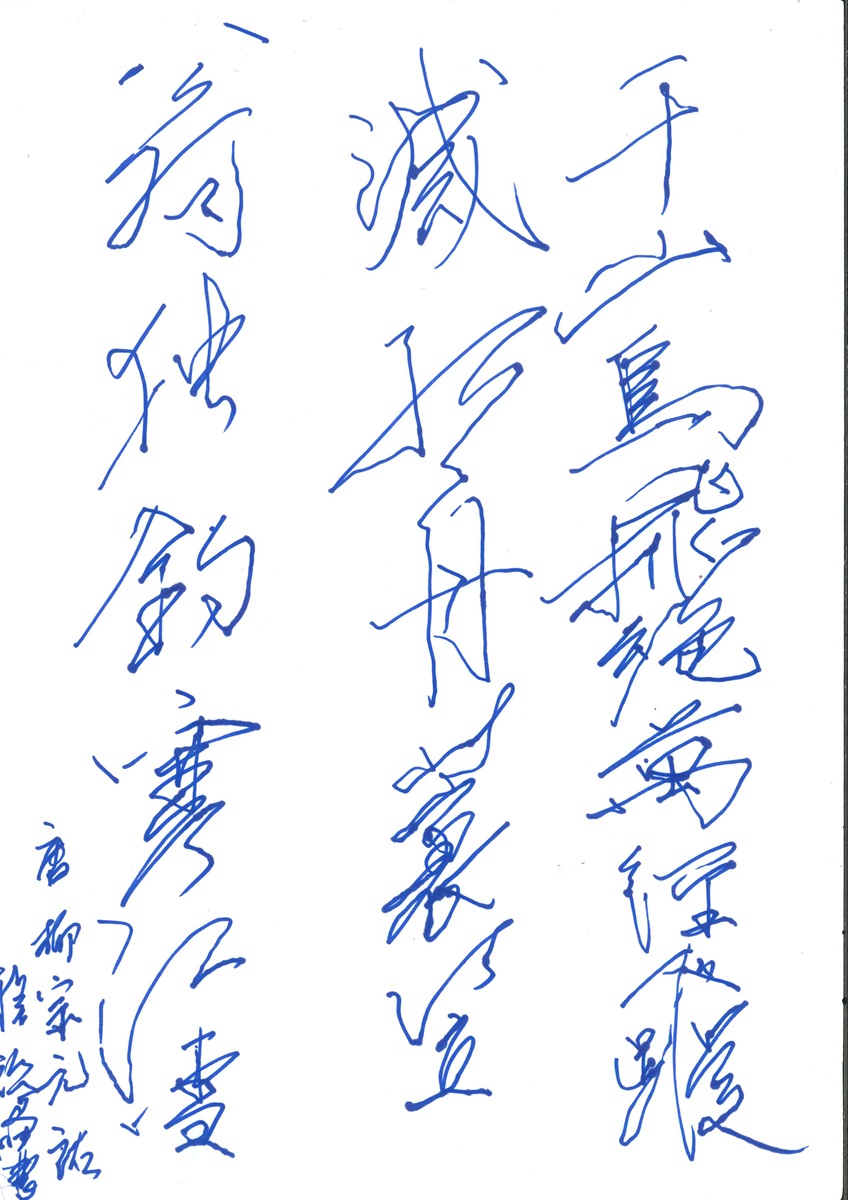 千山鳥飛絕萬徑人蹤
滅孤舟蓑笠
翁独釣寒江雪
唐柳宗元詩
書